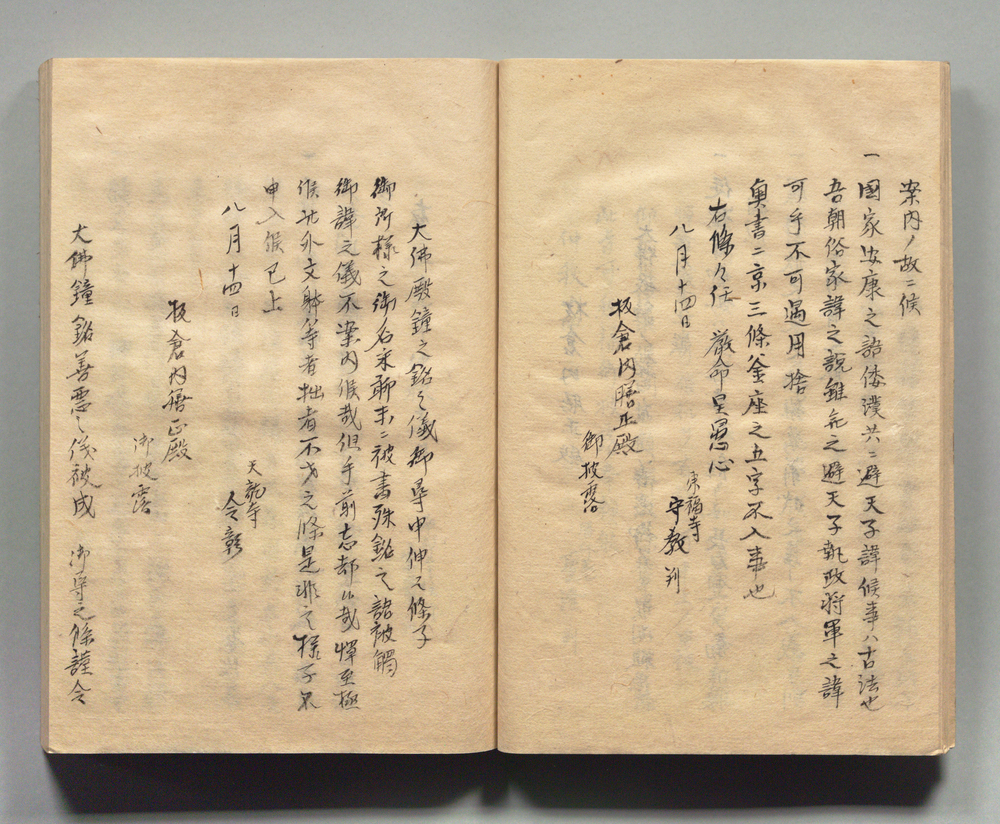 案内ノ故ニ候
一國家安康之語倭漢共ニ避天子諱候事ハ古法也
吾朝俗家諱之說雖無之避天子執政将軍之諱
可乎不可過用捨
奥書ニ京三條釜座之五字不入事也
右條々任 厳命呈愚心
八月十四日
東福寺
守藝 判
板倉内膳正殿
御披露
大佛殿鐘之銘之儀御尋申伸之條子
御所様之御名乗聊尓ニ被書殊銘之語被觸
御諱之儀不案内候哉但手前忘却候哉憚至極
候此外文躰等者拙者不才之條是非之様子不
申入候已上
八月十四日
天龍寺
令彰
板倉内膳正殿
御披露
大佛鐘銘善悪之儀被成 御尋之條謹令